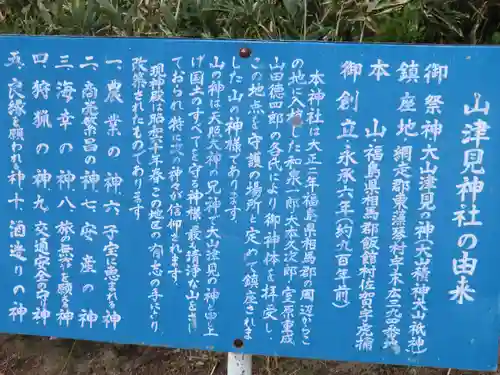 山津見神社の由来
御祭神 大山津見の神（大山積神 大山祇神）
鎮座地 網走郡東藻琴村字末広三九四番地
本山 福島県相馬郡飯館村佐須字虎捕
御創立 永承六年（約九百年前）
本神社は大正二年福島県相馬郡の周辺からこ
の地に入植した和泉一郎、大本久次郎、室原重成
山田徳四郎の各氏により御神体を拝受し、
この地点を守護の場所と定めて鎮座されま
した山の神様であります。
山の神は天照大神の兄神で大山津見の神と申上
げ国土のすべてを守る神様、最も清浄な山を
ておられ特に次の神々が信仰されます。
現神殿は昭和六十年春この地区の有志の手により
改築されたものであります。
一、農業の神 六、子宝に恵まれる神
二、商売繁昌の神 七、安産の神
三、海幸の神 八、旅の無事を願う神
四、狩猟の神 九、交通安全の守り神
五、良縁を願われる神 十、酒造りの神